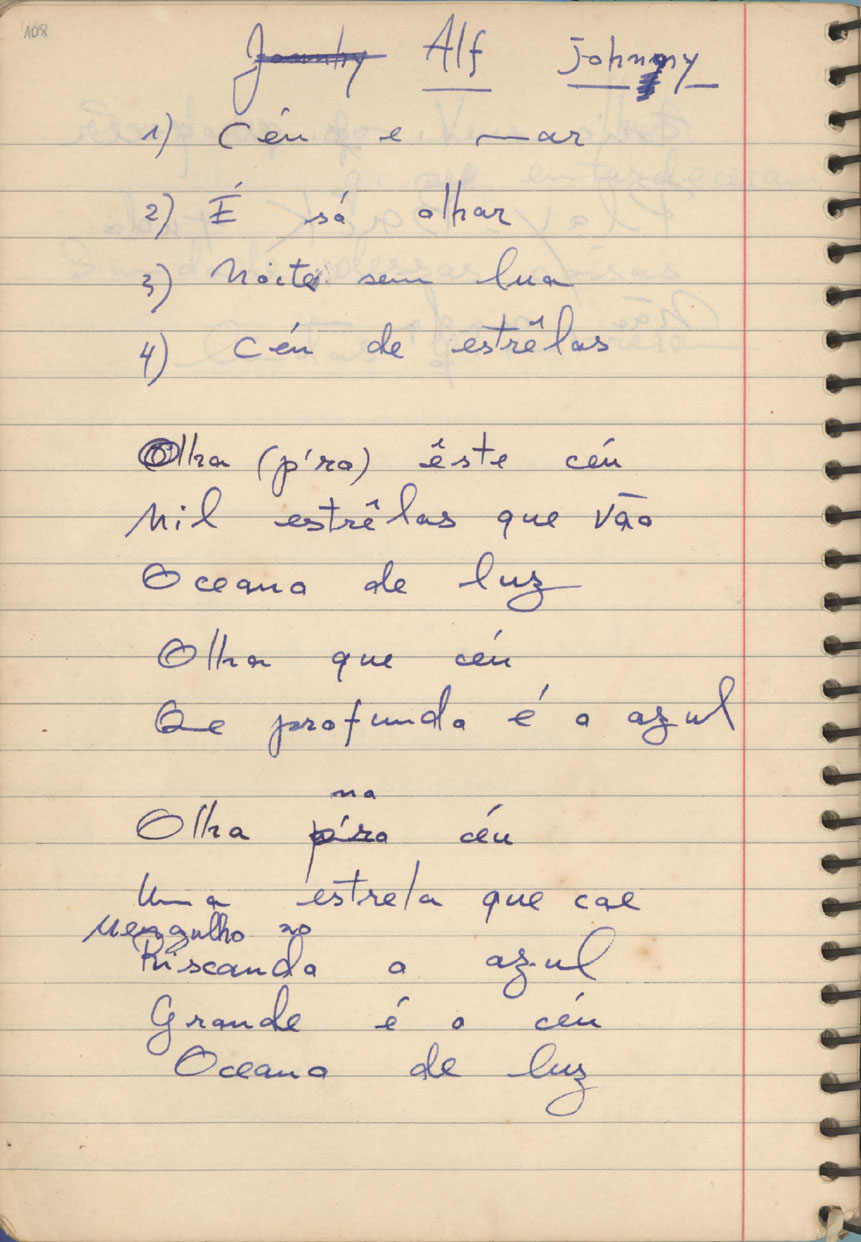 108
Jounhy Alf Johnny
1) Céu e mar
2) É só olhar
3) Noite sem lua
4) Céu de estrêlas
Olha (p'ro) êste céu
Mil estrêlas que vão
Oceano de luz
Olha que céu
Que profundo é o azul
no
Olha p'ro céu
Uma estrela que cae
Mergulho no
Riscando o azul
Grande é o céu
Oceano de luz